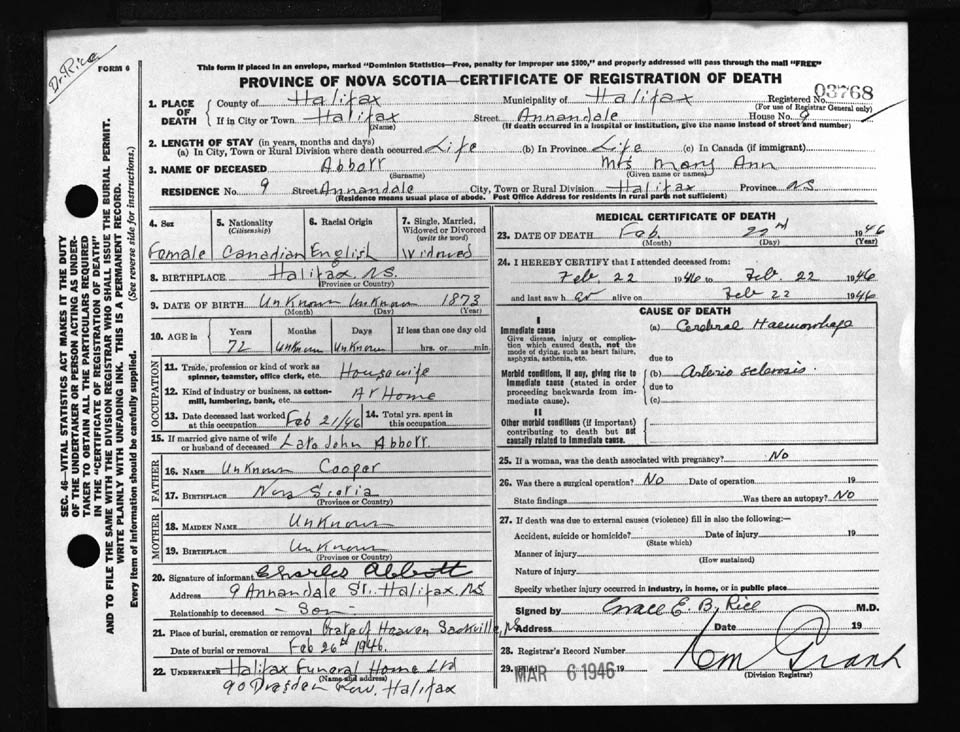 Dr. Rice
FORM 6
This form if placed in an envelope, marked "Dominion Statistics—Free, penalty for improper use $300," and properly addressed will pass through the mail "FREE"
PROVINCE OF NOVA SCOTIA—CERTIFICATE OF REGISTRATION OF DEATH
03768
1. PLACE OF DEATH County of Halifax Municipality of Halifax Registered No.
(For use of Registrar General only)
If in City or Town Halifax Street Annandale House No. 9
(Name) (If death occurred in a hospital or institution, give the name instead of street and number)
2. LENGTH OF STAY (in years, months and days)
(a) In City, Town or Rural Division where death occurred Life (b) In Province Life (c) In Canada (if immigrant)
3. NAME OF DECEASED Abbott Mrs Mary Ann
(Surname) (Given name or names)
RESIDENCE No. 9 Street Annandale City, Town or Rural Division Halifax Province N.S.
(Residence means usual place of abode. Post Office Address for residents in rural parts not sufficient)
4. Sex 5. Nationality (Citizenship) 6. Racial Origin 7. Single, Married, Widowed or Divorced (write the word)
Female Canadian English Widowed
8. BIRTHPLACE Halifax N.S.
(Province or Country)
9. DATE OF BIRTH Unknown Unknown 1873
(Month) (Day) (Year)
10. AGE in Years Months Days If less than one day old
72 Unknown Unknown hrs. or min.
OCCUPATION
11. Trade, profession or kind of work as spinner, teamster, office clerk, etc. Housewife
12. Kind of industry or business, as cotton-mill, lumbering, bank, etc. At Home
13. Date deceased last worked at this occupation Feb 21/46 14. Total yrs. spent in this occupation
15. If married give name of wife or husband of deceased Late John Abbott
FATHER
16. NAME Unknown Cooper
17. BIRTHPLACE Nova Scotia
(Province or Country)
MOTHER
18. MAIDEN NAME Unknown
19. BIRTHPLACE Unknown
(Province or Country)
20. Signature of informant Charles Abbott
Address 9 Annandale St. Halifax, N.S
Relationship to deceased - Son -
21. Place of burial, cremation or removal Gate of Heaven Sackville, N.S
Date of burial or removal Feb 26th 1946.
22. UNDERTAKER Halifax Funeral Home Ltd
(Name and address)
90 Dresden Row, Halifax
MEDICAL CERTIFICATE OF DEATH
23. DATE OF DEATH Feb. 22nd 1946
(Month) (Day) (Year)
24. I HEREBY CERTIFY that I attended deceased from:
Feb. 22 1946 to Feb 22 1946
and last saw h er alive on Feb 22 1946
CAUSE OF DEATH
I
Immediate cause (a) Cerebral Haemorrhage
Give disease, injury or complication which caused death, not the mode of dying, such as heart failure, asphyxia, asthenia, etc.
due to
Morbid conditions, if any, giving rise to immediate cause (stated in order proceeding backwards from immediate cause).
(b) Arterio sclerosis.
due to
(c)
II
Other morbid conditions (if important) contributing to death but not causally related to immediate cause.
25. If a woman, was the death associated with pregnancy? No
26. Was there a surgical operation? No Date of operation 19
State findings Was there an autopsy? No
27. If death was due to external causes (violence) fill in also the following:—
Accident, suicide or homicide? Date of injury 19
(State which)
Manner of injury
(How sustained)
Nature of injury
Specify whether injury occurred in industry, in home, or in public place
Signed by Grace E. B. Rice M.D.
Address Date 19
28. Registrar's Record Number
29. Filed MAR 6 1946 19
(Division Registrar)
SEC. 46—VITAL STATISTICS ACT MAKES IT THE DUTY
OF THE UNDERTAKER OR PERSON ACTING AS UNDER-
TAKER TO OBTAIN ALL THE PARTICULARS REQUIRED
IN THE "CERTIFICATE OF REGISTRATION OF DEATH"
AND TO FILE THE SAME WITH THE DIVISION REGISTRAR WHO SHALL ISSUE THE BURIAL PERMIT.
WRITE PLAINLY WITH UNFADING INK. THIS IS A PERMANENT RECORD.
Every item of information should be carefully supplied. (See reverse side for instructions.)